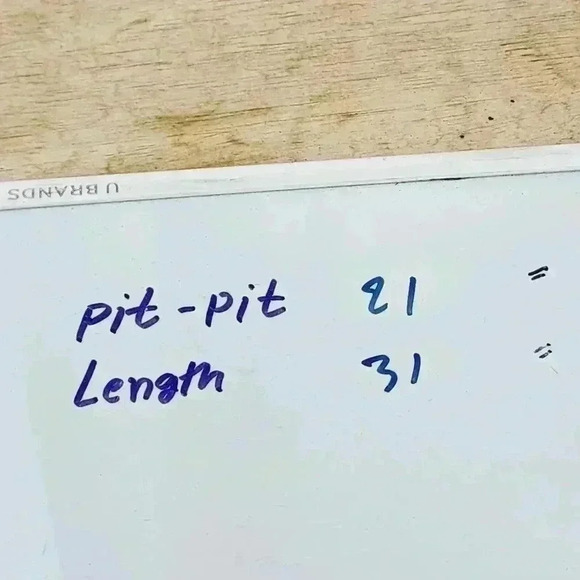 U BRANDS
pit-pit 21 "
Length 31 "